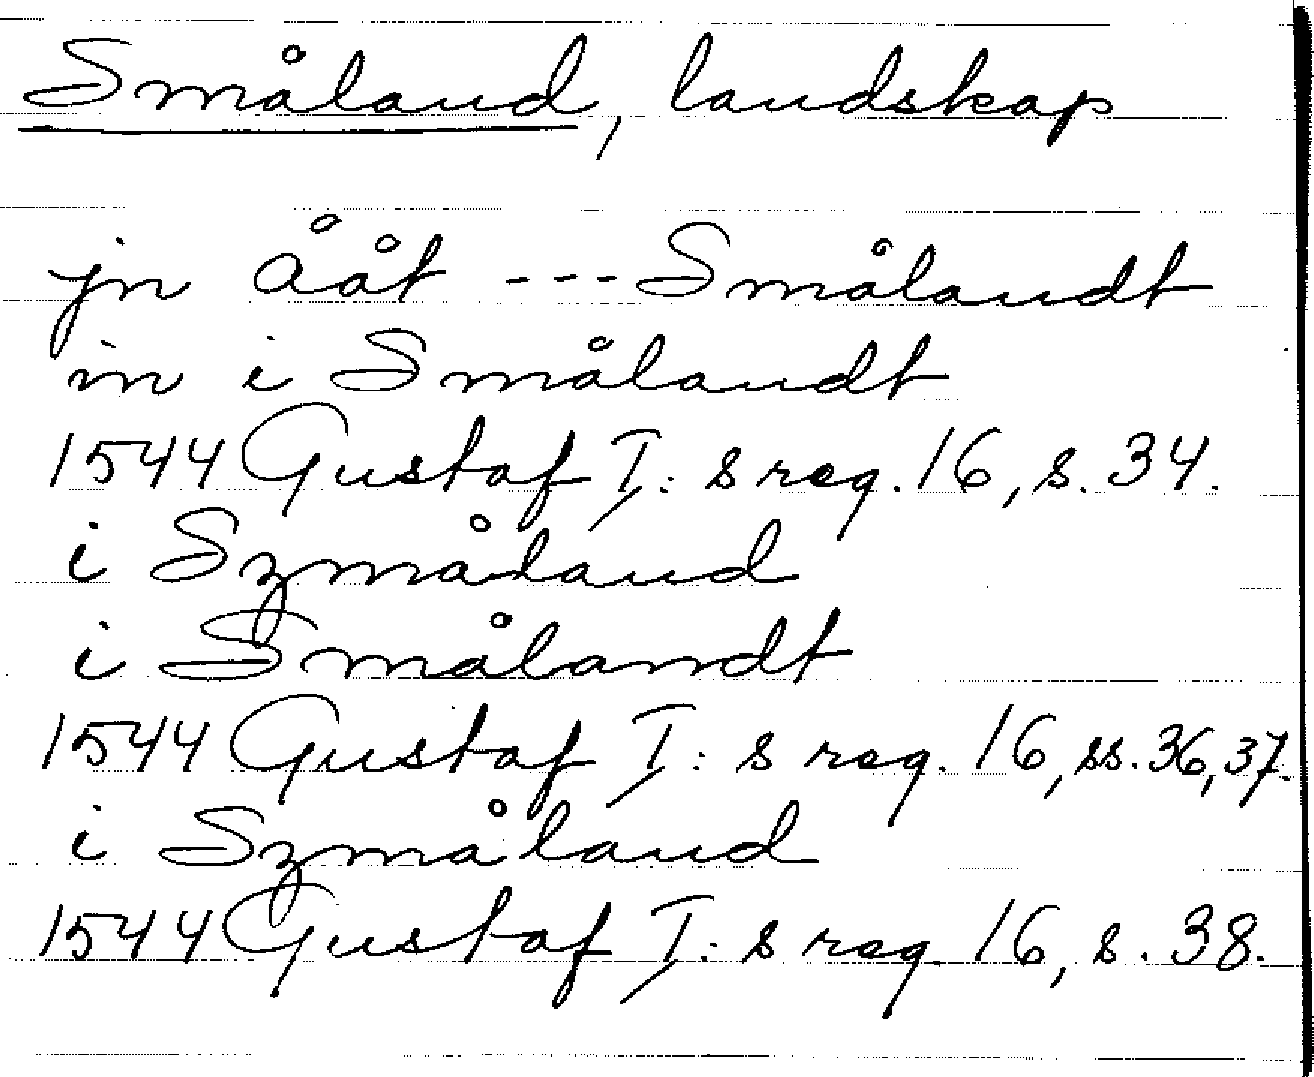 Småland, landskap
jn ååt --- Smålandt
in i Smålandt
1544 Gustaf I:s reg. 16, s. 34.
i Szmåland
i Smålandt
1544 Gustaf I:s reg. 16, ss. 36, 37.
i Szmåland
1544 Gustaf I:s reg. 16, s. 38.